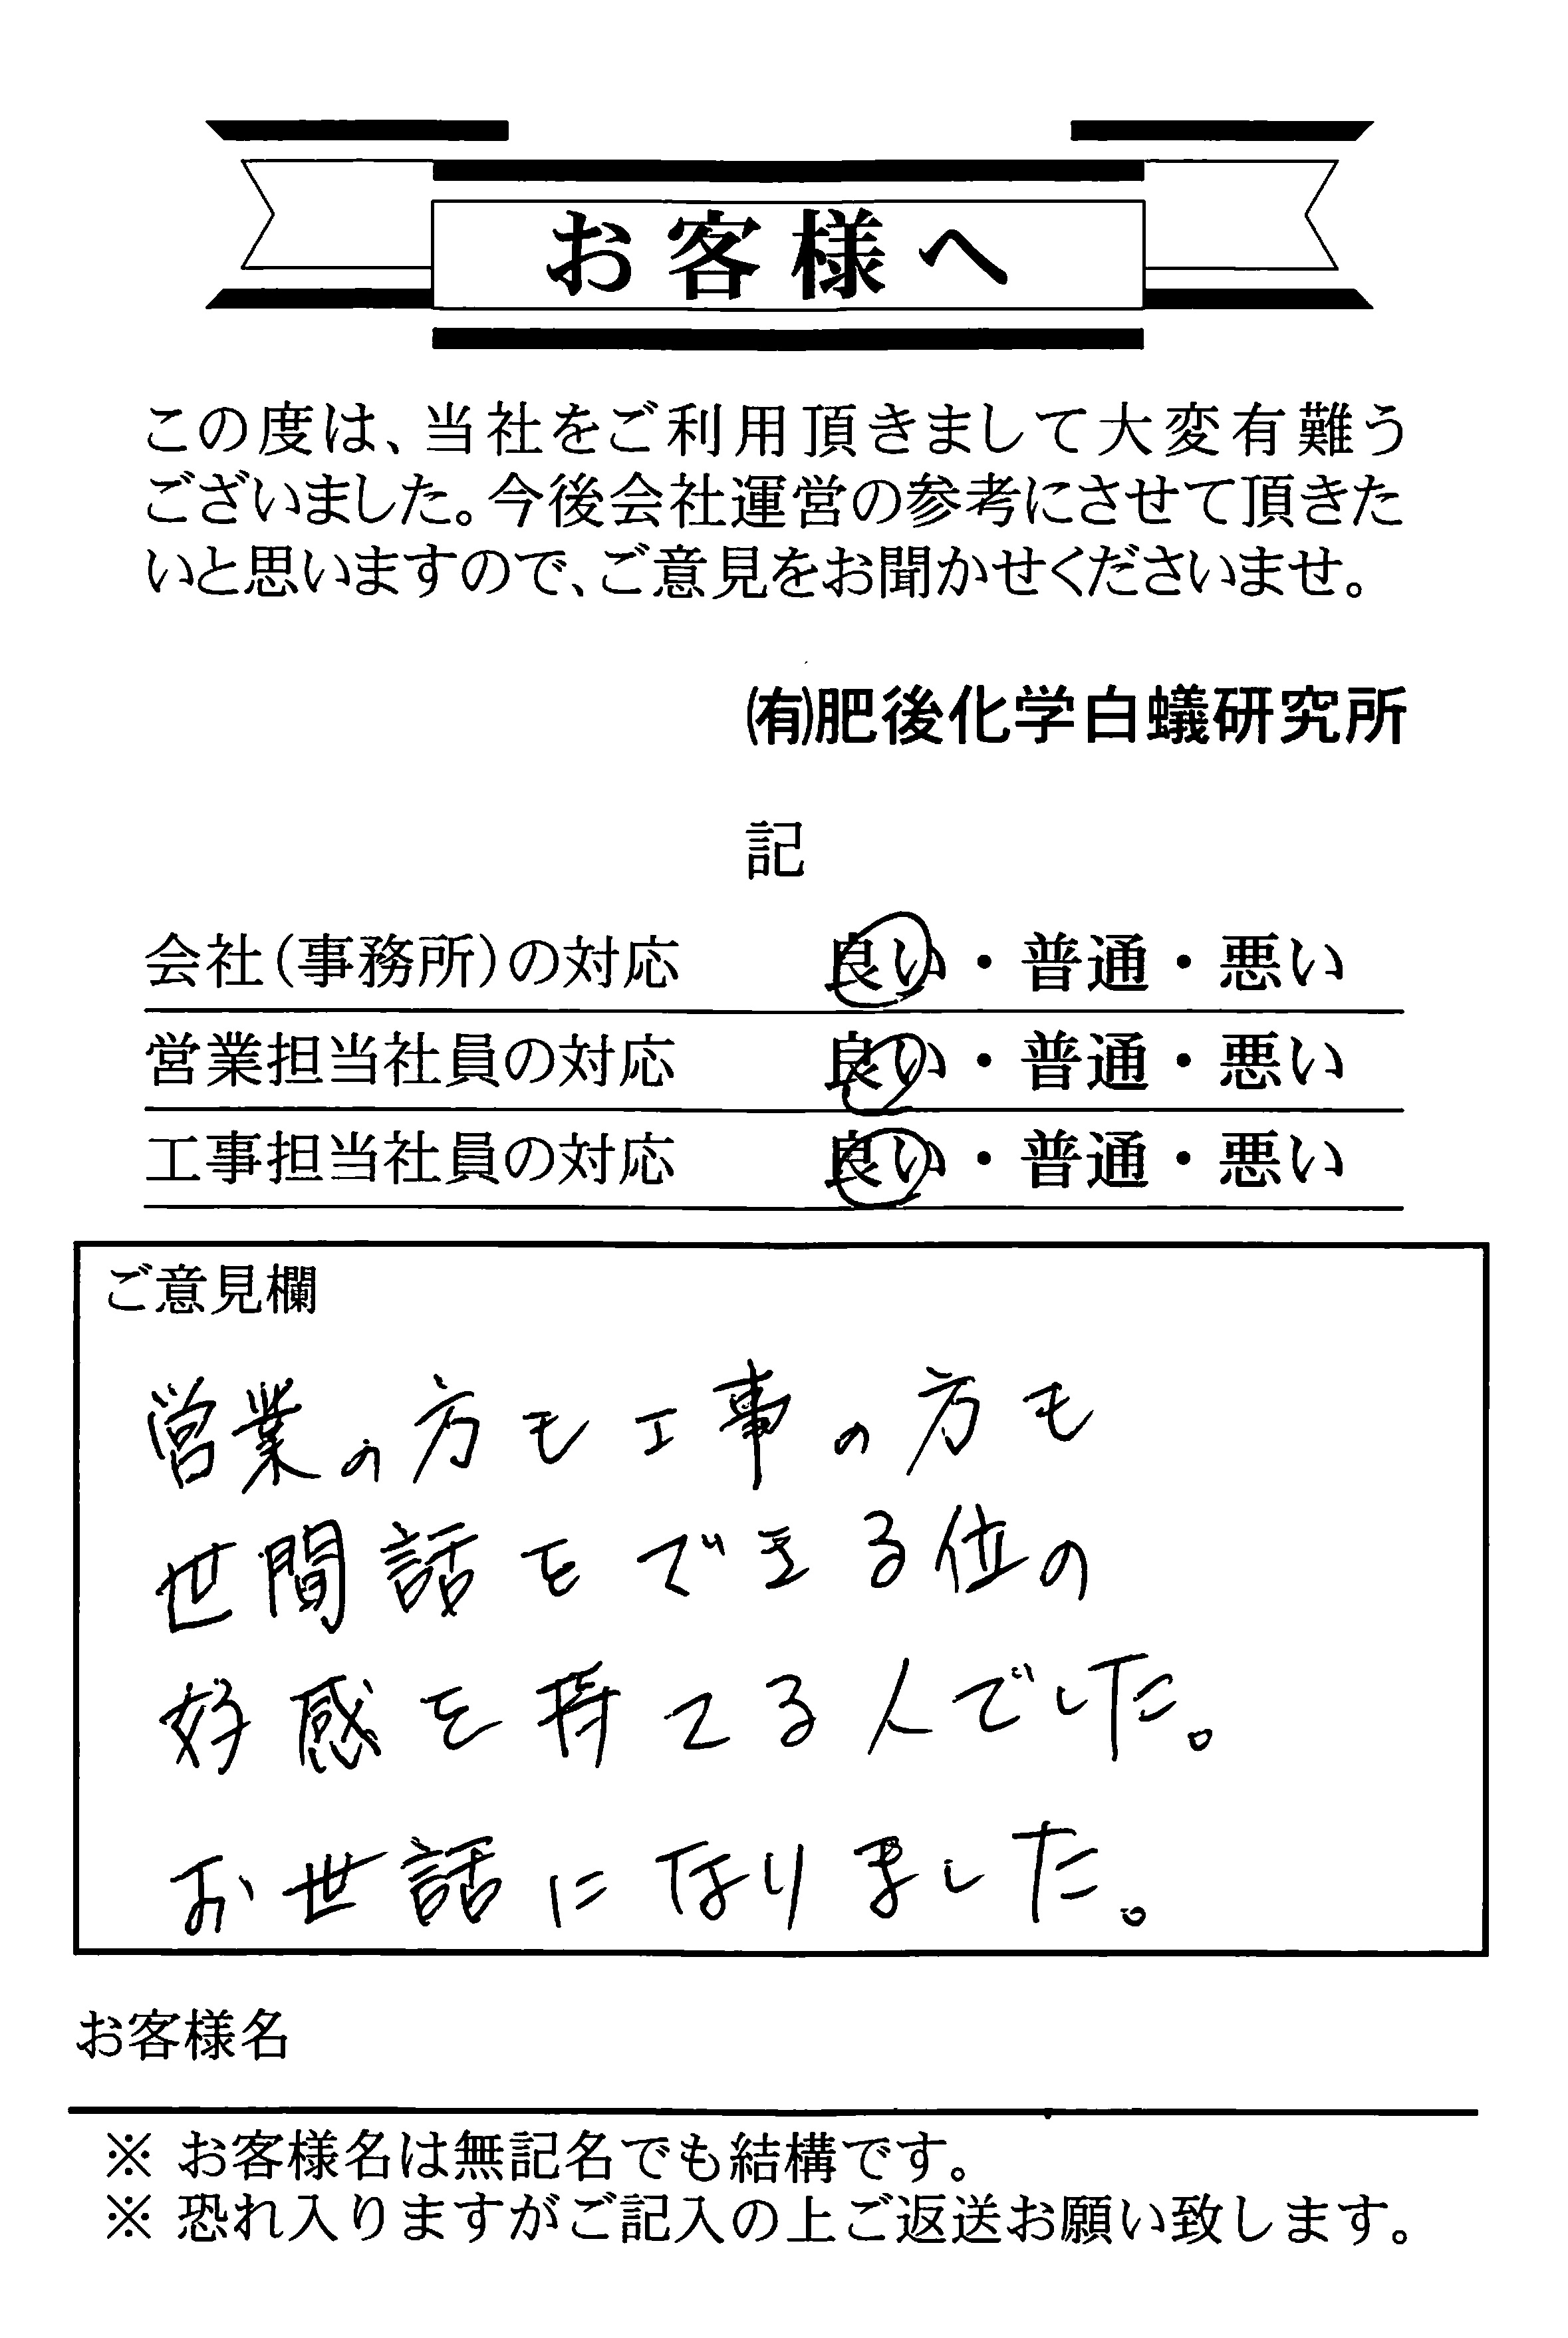 お客様へ
この度は、当社をご利用頂きまして大変有難う
ございました。今後会社運営の参考にさせて頂きた
いと思いますので、ご意見をお聞かせくださいませ。
㈲肥後化学白蟻研究所
記
会社(事務所)の対応 良い・普通・悪い
営業担当社員の対応 良い・普通・悪い
工事担当社員の対応 良い・普通・悪い
ご意見欄
営業の方も工事の方も
世間話をできる位の
好感を持てる人でした。
お世話になりました。
お客様名
※ お客様名は無記名でも結構です。
※ 恐れ入りますがご記入の上ご返送お願い致します。